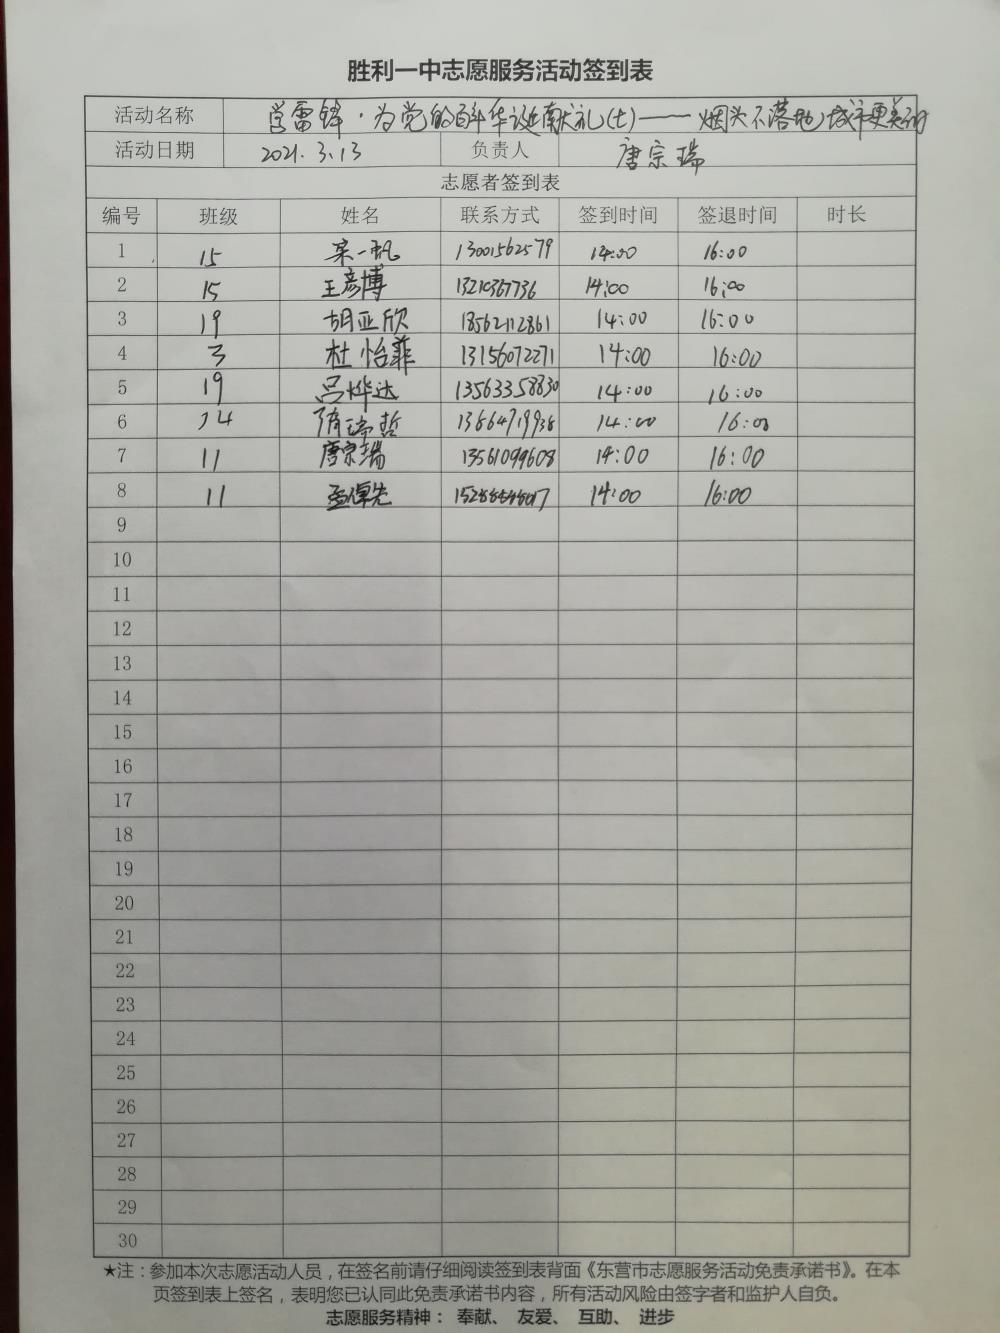 胜利一中志愿服务活动签到表
活动名称 学雷锋·为党的百年华诞献礼(七)——烟头不落地,城市更美丽
活动日期 2021.3.13 负责人 唐宗瑞
志愿者签到表
编号 班级 姓名 联系方式 签到时间 签退时间 时长
1 15 宋一凡 13001562579 14:00 16:00
2 15 王彦博 13210367736 14:00 16:00
3 19 胡亚欣 18562112861 14:00 16:00
4 3 杜怡菲 13156072271 14:00 16:00
5 19 吕烨达 13563358830 14:00 16:00
6 24 隋瑞哲 13864719938 14:00 16:00
7 11 唐宗瑞 13561099608 14:00 16:00
8 11 14:00 16:00
9
10
11
12
13
14
15
16
17
18
19
20
21
22
23
24
25
26
27
28
29
30
★注：参加本次志愿活动人员，在签名前请仔细阅读签到表背面《东营市志愿服务活动免责承诺书》。在本
页签到表上签名，表明您已认同此免责承诺书内容，所有活动风险由签字者和监护人自负。
志愿服务精神： 奉献、 友爱、 互助、 进步